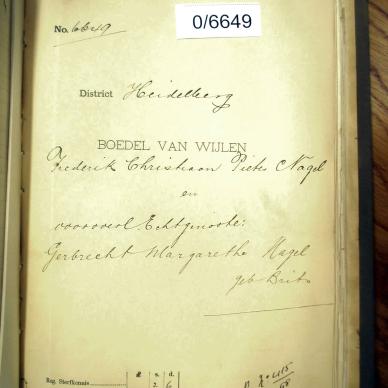 0/6649
No. 6649
District Heidelberg
BOEDEL VAN WIJLEN
Frederik Christiaan Pieter Nagel
en
vooroverl Echtgenoote:
Gerbrecht Margaretha Nagel
geb Brits
£. s. d.
Reg. Sterfkennis 2 6